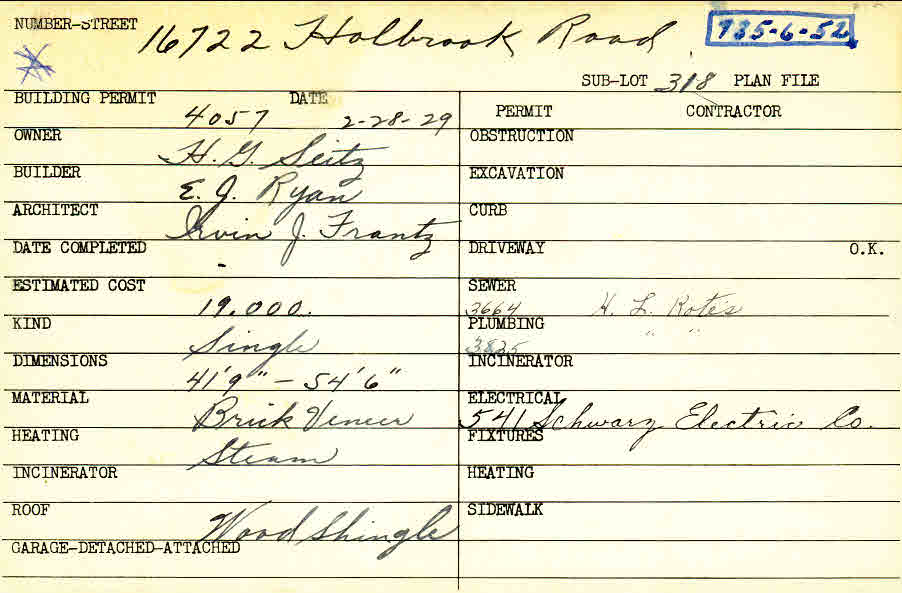 NUMBER-STREET 16722 Holbrook Road 735-6-52
SUB-LOT 318 PLAN FILE
BUILDING PERMIT 4057 DATE 2-28-29
PERMIT CONTRACTOR
OWNER H. G. Seitz
OBSTRUCTION
BUILDER E. J. Ryan
EXCAVATION
ARCHITECT Irvin J. Frantz
CURB
DATE COMPLETED -
DRIVEWAY O.K.
ESTIMATED COST 19.000.
SEWER 3664 H. L. Rotes
KIND Single
PLUMBING 3825 " "
DIMENSIONS 41'9" - 54'6"
INCINERATOR
MATERIAL Brick Veneer
ELECTRICAL 541 Schwarz Electric Co.
HEATING Steam
FIXTURES
INCINERATOR
HEATING
ROOF Wood Shingle
SIDEWALK
GARAGE-DETACHED-ATTACHED